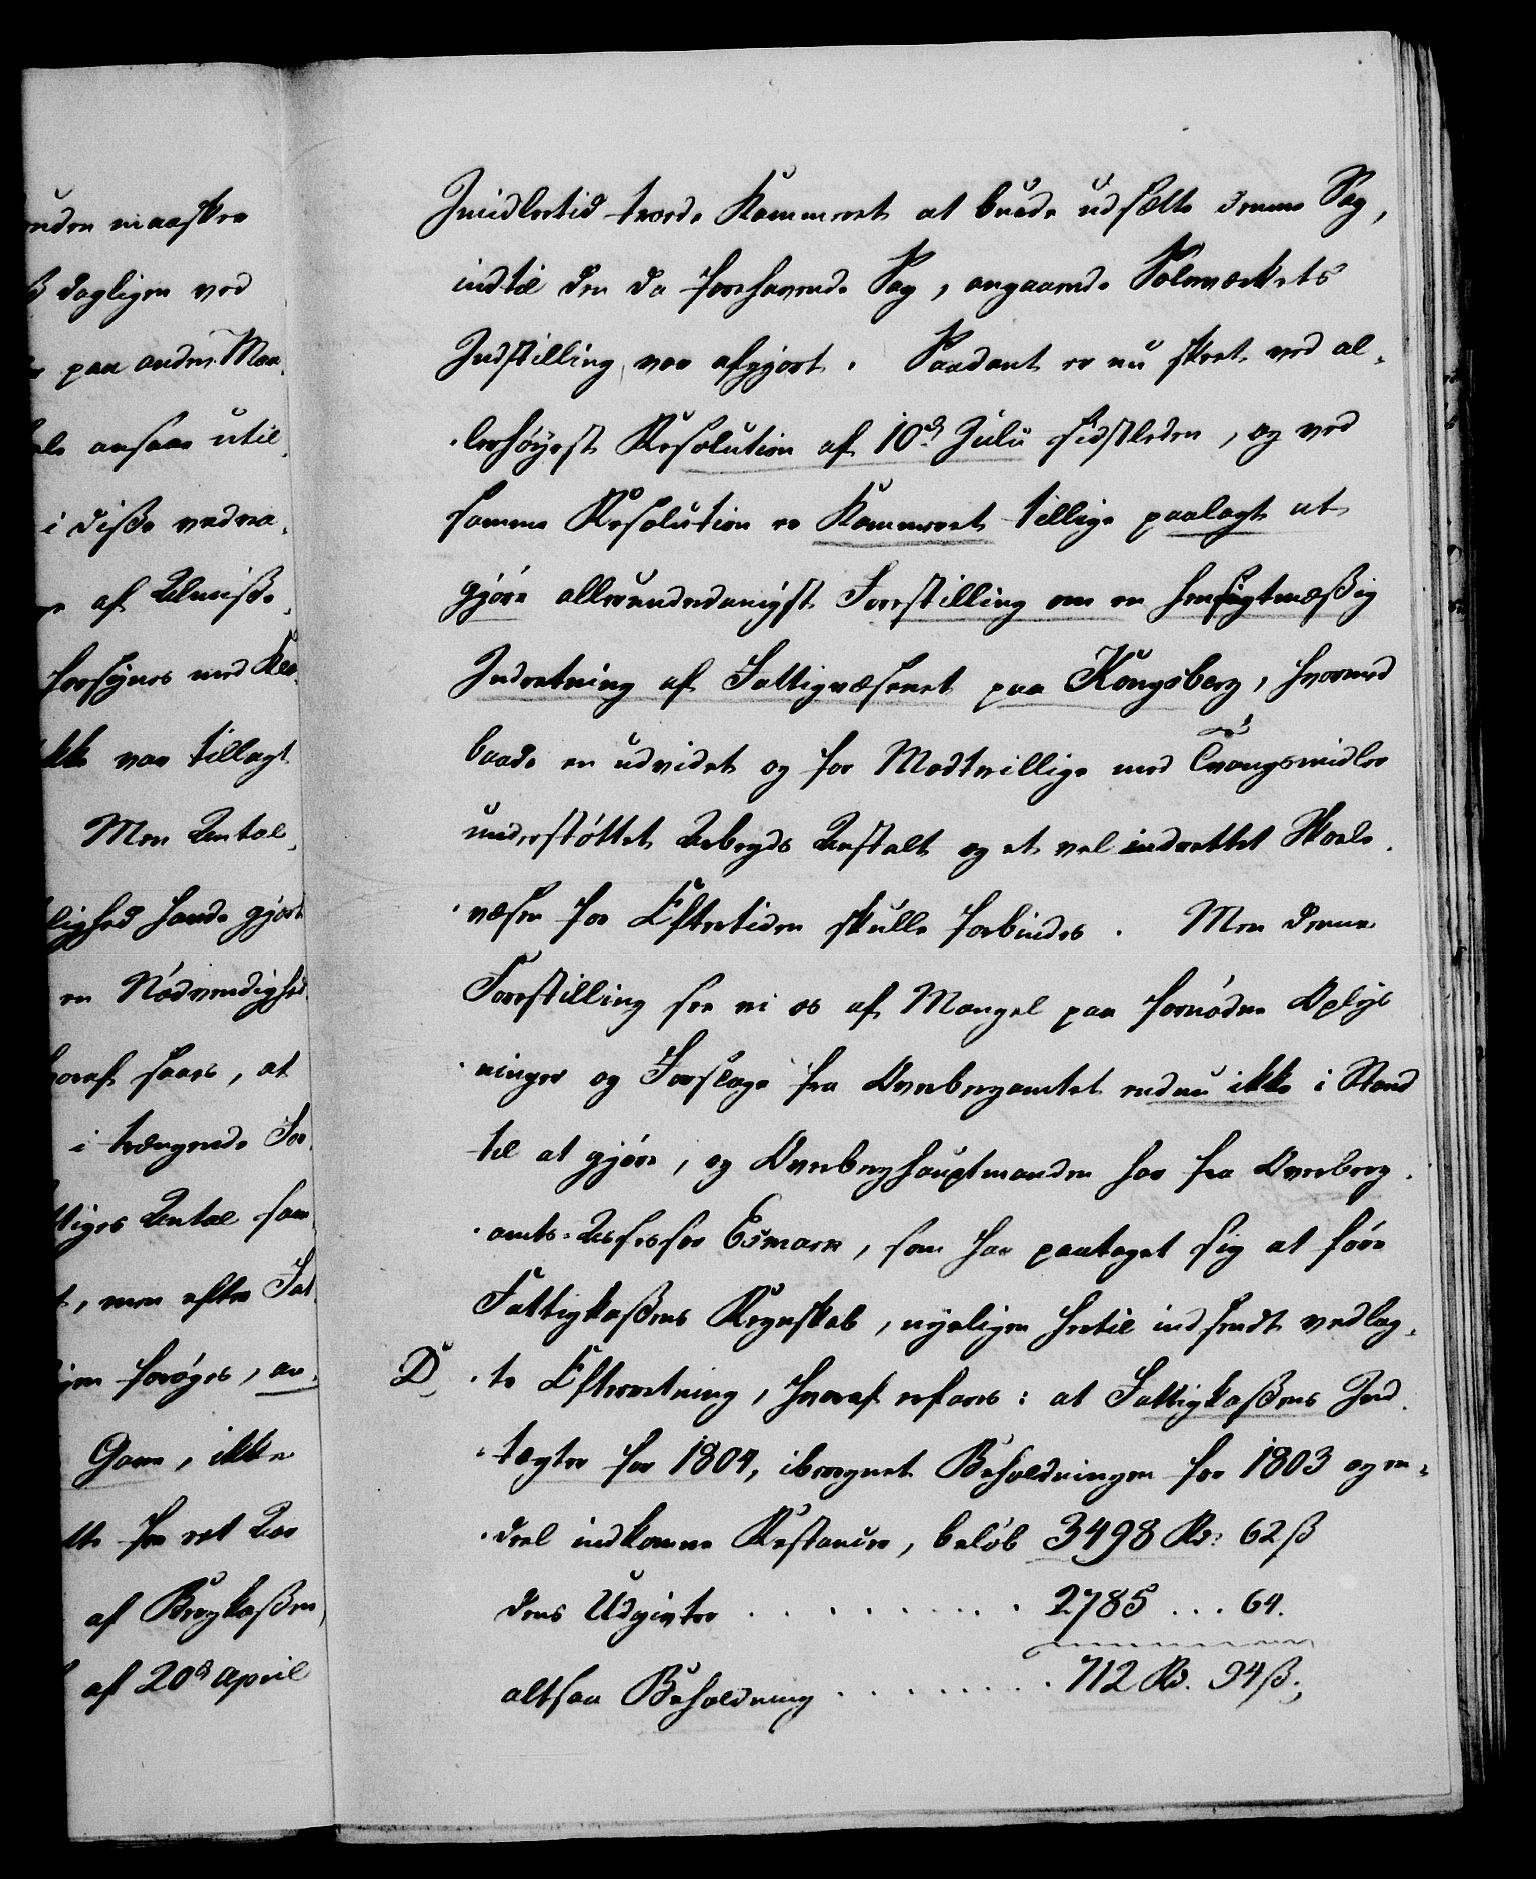 unden maaskee
dagligen ved
paa anden Maa-
ansaae util-
i disse vedva-
af Almisse-
forsynes med Klæ-
ikke var tillagt
Men Antal-
lighed havde gjort
en Nödvendighed
hvoraf saaes, at
i trængende For-
Antal sam-
, men efter Fat-
forøges, an-
Gave, ikke
for ret Aar
af Bergkassen
af 20d April
Imidlertid troede Kammeret at burde udsætte denne Sag,
indtil den da forehavende Sag, angaaende Sølvværkets
Indstilling, var afgjort. Saadant er nu skeet ved al-
-lerhöyest Resolution af 10d Julii sidstleden, og ved
samme Resolution er Kammeret tillige paalagt at
gjöre allerunderdanigst Forestilling om en hensigtmæssig
Indretning af Fattigvæsenet paa Kongsberg, hvormed
baade en udvidet og for Modtvillige med Tvangsmidler
understöttet Arbeyds Anstalt og et vel indrettet Skole-
-væsen for Eftertiden skulle forbindes. Men denne
Forestilling see vi os af Mangel paa fornödne Oplys
-ninger og Forslage fra Overbergamtet endnu ikke i Stand
til at gjöre, og Overberghauptmanden har fra Overberg-
-amts-Assessor Esmark, som har paataget sig at före
Fattigkassens Regnskab, nyeligen hertil indsendt vedlag-
D. -te Efterretning, hvoraf erfares: at Fattigkassens Ind-
-tægter for 1804, iberegnet Beholdningen for 1803 og en-
-deel indkomne Restancer, belöb 3498 Rd: 62 ß
dens Udgivter . . . . . . . . . 2785 ... 64.
altsaa Beholdning . . . . . . . . 712 Rd. 94 ß;